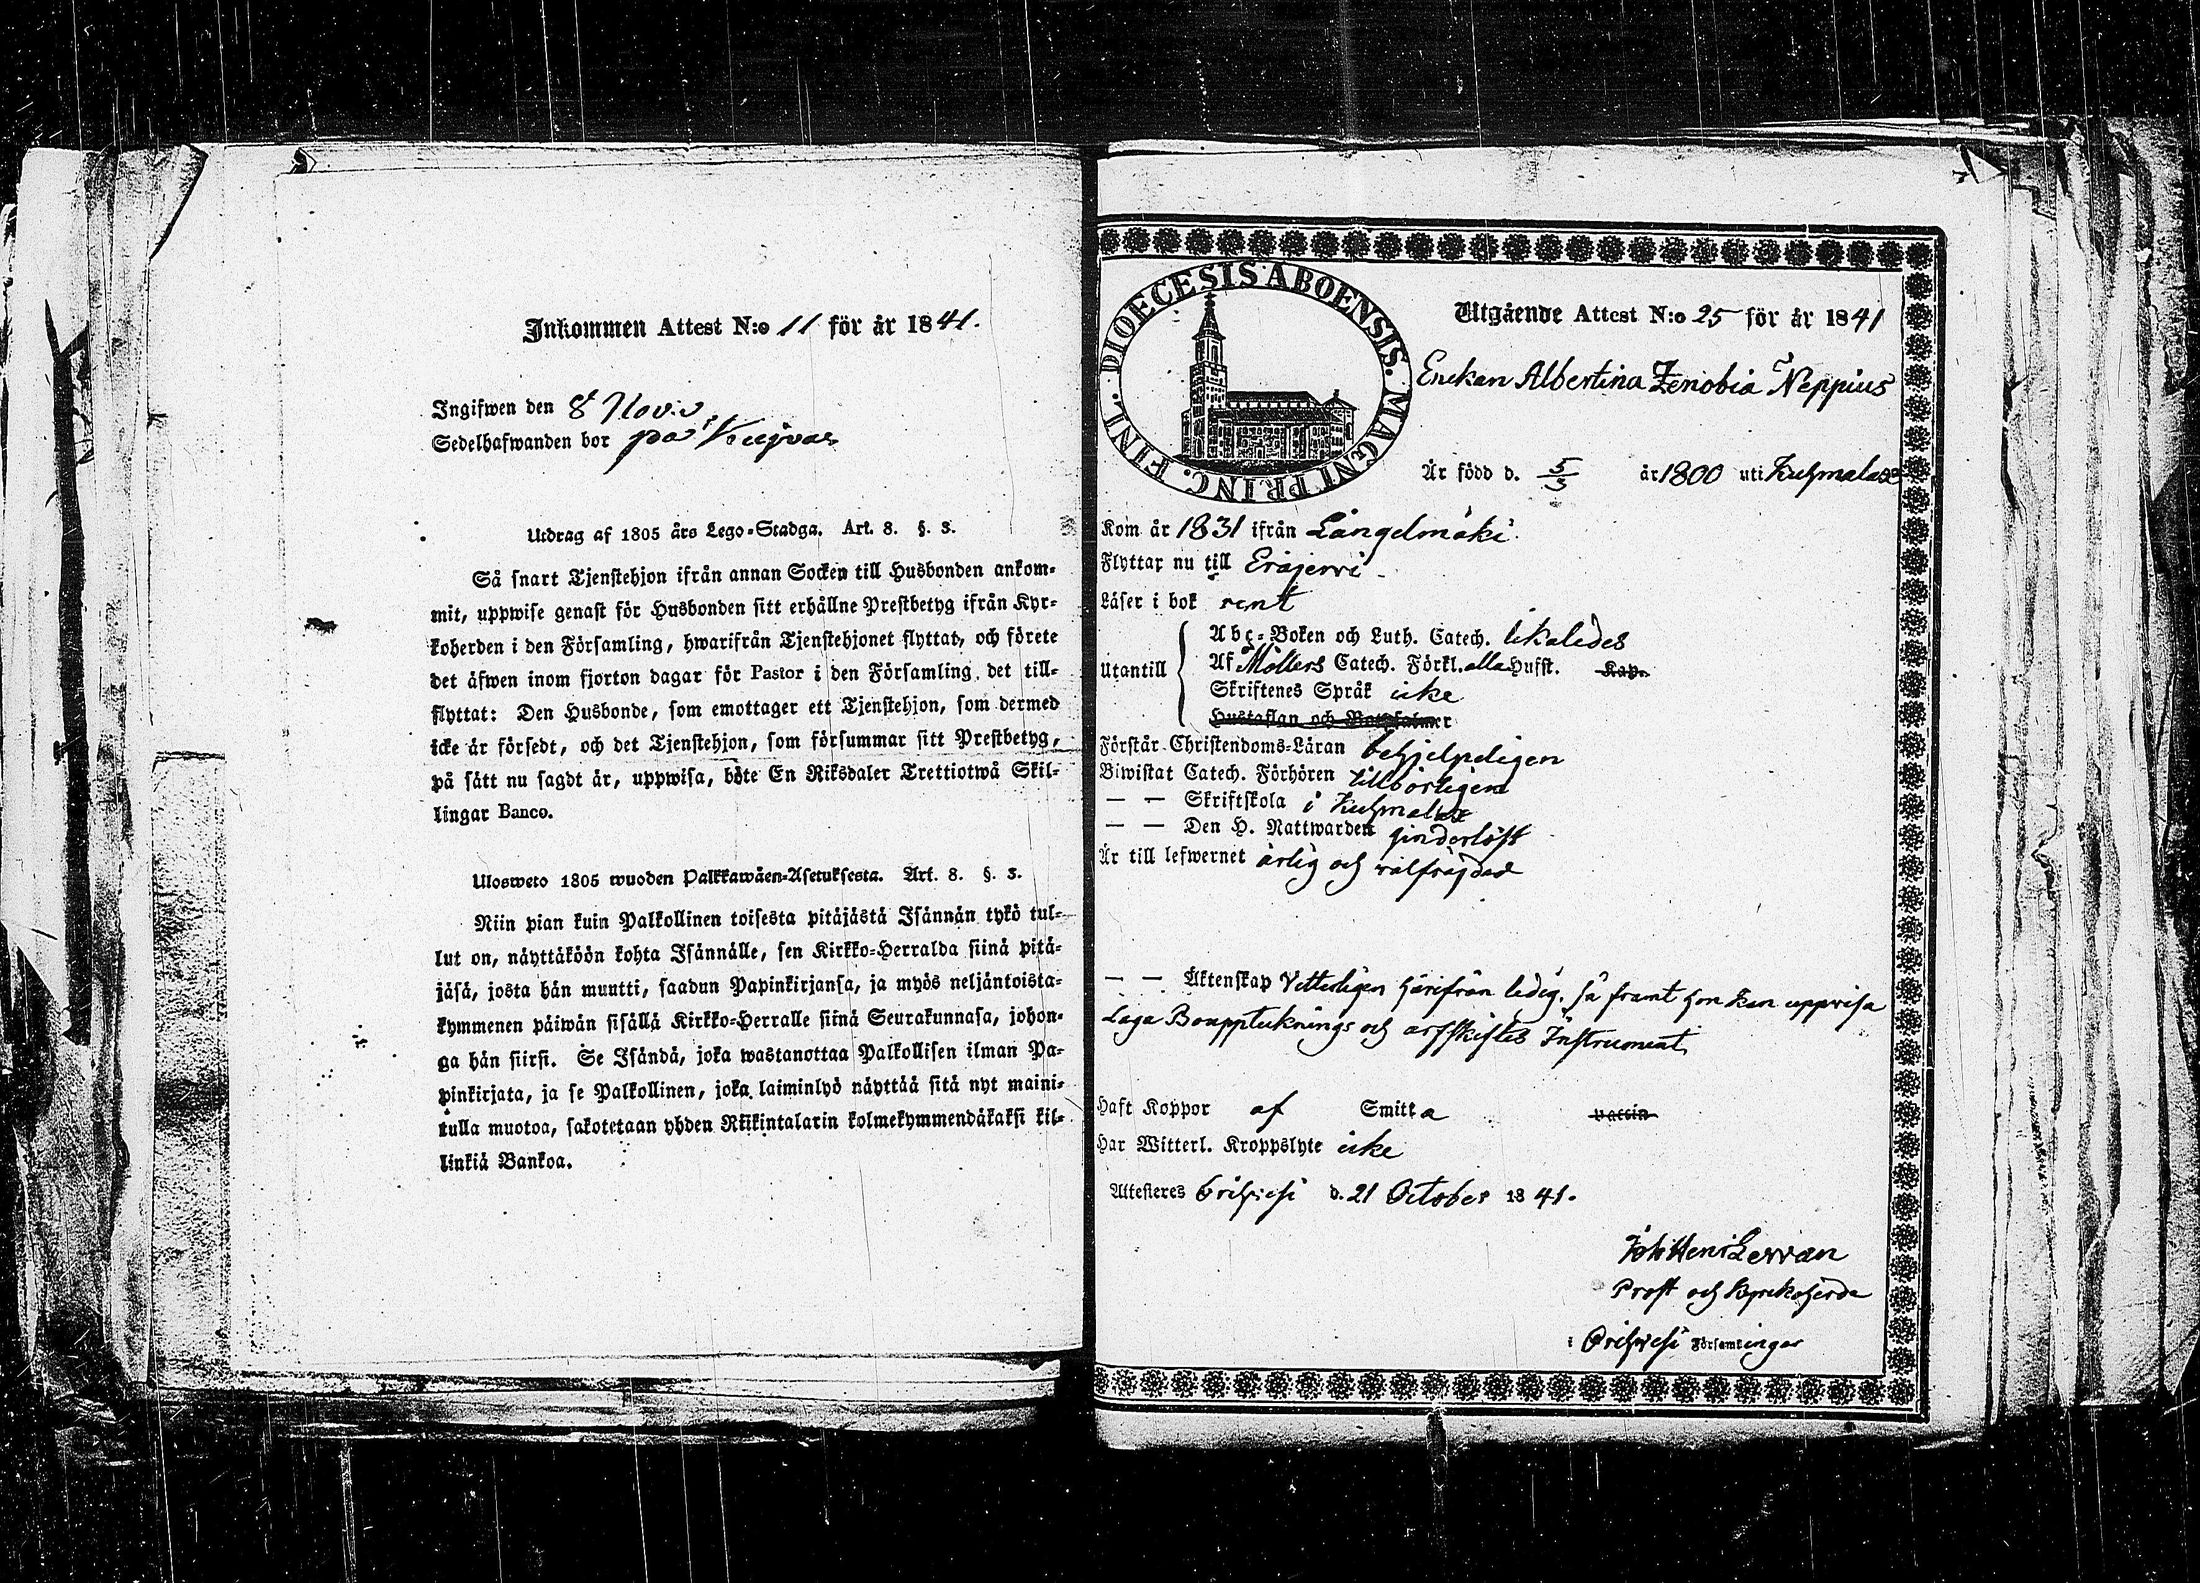 Inkommen Attest N:o 11 för år 1841.
Ingifwen den 8 Nov:
Sedelhafwanden bor på
Utdrag af 1805 års Lego-Stadga. Art. 8. §. 3.
Så snart Tjenstehjon ifrån annan Socken till Husbonden ankom-
mit, uppwise genast för Husbonden sitt erhållne Prestbetyg ifrån Kyr-
koherden i den Församling, hwarifrån Tjenstehjonet flyttat, och förete
det äfwen inom fjorton dagar för Pastor i den Församling, det till-
flyttat: Den Husbonde, som emottager ett Tjenstehjon, som dermed
icke är försedt, och det Tjenstehjon, som försummar sitt Prestbetyg,
på sätt nu sagdt är, uppwisa, böte En Riksdaler Trettiotwå Skil-
lingar Banco.
Ulosweto 1805 wuoden Palkkawäen-Asetuksesta. Art. 8. §. 3.
Niin pian kuin Palkollinen toisesta pitäjästä Isännän tykö tul-
lut on, näyttäköön kohta Isännälle, sen Kirkko-Herralda siinä pitä-
jäsä, josta hän muutti, saadun Papinkirjansa, ja myös neljäntoista-
kymmenen päiwän sisällä Kirkko-Herralle siinä Seurakunnasa, johon-
ga hän siirsi. Se Isändä, joka wastanottaa Palkollisen ilman Pa-
pinkirjata, ja se Palkollinen, joka laiminlyö näyttää sitä nyt maini-
tulla muotoa, sakotetaan yhden Riikintalarin kolmekymmendäkaksi kil-
linkiä Bankoa.
DIOECESIS ABOENSIS. MAGNI PRINC. FINL.
Utgående Attest N:o 25 för år 1841
Enckan Albertina Zenobia Neppius
Är född d. 5/3 år 1800 uti Kuhmalax
Kom år 1831 ifrån Längelmäki
Flyttar nu till Eräjervi
Läser i bok rent
Utantill
Abc-Boken och Luth. Catech. likaledes
Af Möllers Catech. Förkl. alla Hufst. Kap.
Skriftenes Språk icke
Hustaflan och Botpsalmer
Förstår Christendoms-Läran behjelpeligen
Biwistat Catech. Förhören tillbörligen
— — Skriftskola i Kuhmalax
— — Den H. Nattwarden hinderlöst
Är till lefwernet ärlig och välfräjdad
— — Äktenskap Vetterligen härifrån ledig, så framt hon kan uppvisa
Laga Bouppteknings och arfskiftes Instrument
Haft Koppor af Smitta vaccin
Har Witterl. Kroppslyte icke
Attesteres Orihvesi d. 21 October 1841.
Joh Henr Lerran
Prost och Kyrkoherde
i Orihvesi Församlingar